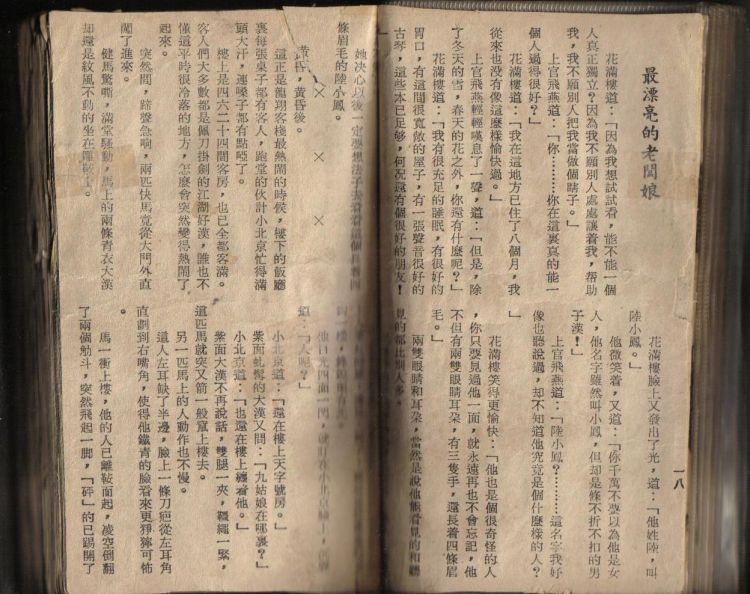 一八
最漂亮的老闆娘
花滿樓道：「因為我想試試看，能不能一個
人真正獨立？因為我不願別人處處讓着我，幫助
我，我不願別人把我當做個瞎子。」
上官飛燕道：「你………你在這裏真的能一
個人過得很好？」
花滿樓道：「我在這地方已住了八個月，我
從來也沒有像這麼樣愉快過。」
上官飛燕輕輕嘆息了一聲，道：「但是，除
了冬天的雪，春天的花之外，你還有什麼呢？」
花滿樓道：「我有很充足的睡眠，有很好的
胃口，有這間很寬敞的屋子，有一張聲音很好的
古琴，這些本已足够，何況還有個很好的朋友！
」
花滿樓臉上又發出了光，道：「他姓陸，叫
陸小鳳。」
他微笑着，又道：「你千萬不要以為他是女
人，他名字雖然叫小鳳，但却是條不折不扣的男
子漢！」
上官飛燕道：「陸小鳳？………這名字我好
像也聽說過，却不知道他究竟是個什麼樣的人？
」
花滿樓笑得更愉快：「他也是個很奇怪的人
，你只要見過他一面，就永遠再也不會忘記，他
不但有兩雙眼睛和耳朵，有三隻手，還長着四條眉
毛。」
兩雙眼睛和耳朵，當然是說他能看見的和聽
見的都比別人多。
她決心以後一定要想法子去看看這個長着四
條眉毛的陸小鳳。
× × ×
黃昏，黃昏後。
這正是龍翔客棧最熱鬧的時候，樓下的飯廳
裏每張桌子都有客人，跑堂的伙計小北京忙得滿
頭大汗，連嗓子都有點啞了。
樓上是四六二十四間客房，也已全都客滿。
客人們大多數都是佩刀掛劍的江湖好漢，誰也不
懂這平時很冷落的地方，怎麼會突然變得熱鬧了
起來。
突然間，蹄聲急响，兩匹快馬竟從大門外直
闖了進來。
健馬驚嘶，滿堂騷動，馬上的兩條青衣大漢
却還是紋風不動的坐在雕鞍上。
道：「人呢？」
小北京道：「還在樓上天字號房。」
紫面虬髯的大漢又問：「九姑娘在哪裏？」
小北京道：「也還在樓上纏着他。」
紫面大漢不再說話，雙腿一夾，韁繩一緊，
這匹馬就突又箭一般竄上樓去。
另一匹馬上的人動作也不慢。
這人左耳缺了半邊，臉上一條刀疤從左耳角
直劃到右嘴角，使得他鐵青的臉看來更猙獰可怖
。
馬一衝上樓，他的人已離鞍而起，凌空倒翻
了兩個觔斗，突然飛起一脚，「砰」的已踢開了